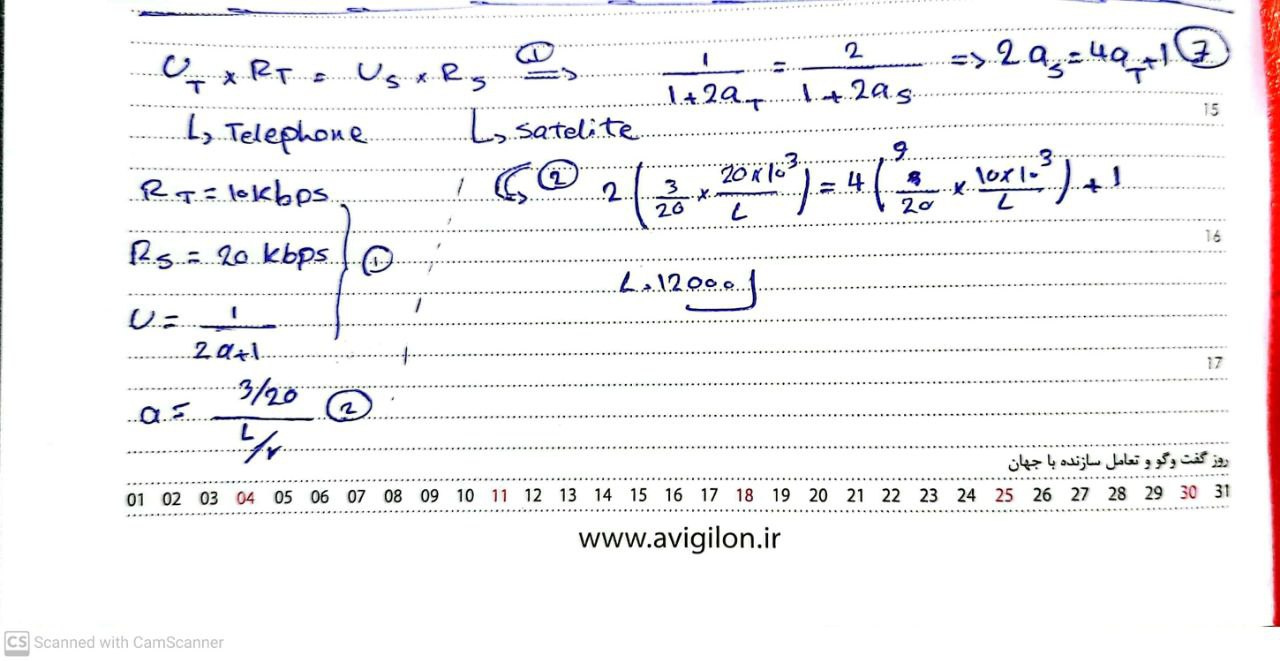 U_T × R_T = U_S × R_S ①⟹ 1/(1+2a_T) = 2/(1+2a_S) => 2a_S = 4a_T+1 ⑦
15
↳ Telephone ↳ satelite
R_T = 10kbps
② 2(3/20 × 20×10^3/L) = 4(9/20 × 10×10^3/L) + 1
16
R_S = 20 kbps ①
L = 12000
U = 1/(2a+1)
17
a = (3/20)/(L/r) ②
روز گفت وگو و تعامل سازنده با جهان
01 02 03 04 05 06 07 08 09 10 11 12 13 14 15 16 17 18 19 20 21 22 23 24 25 26 27 28 29 30 31
www.avigilon.ir
CS Scanned with CamScanner